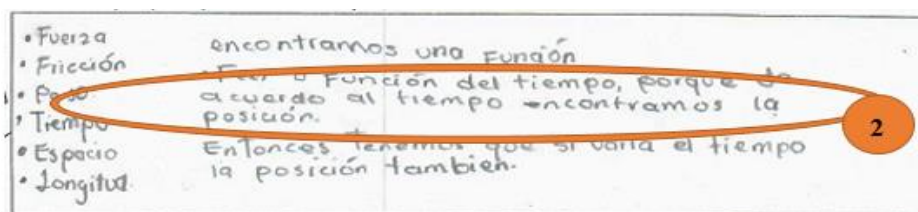 • Fuerza
• Fricción
• Peso
• Tiempo
• Espacio
• Longitud
encontramos una Función
Función del tiempo, porque de
acuerdo al tiempo encontramos la
posición.
Entonces tenemos que si varia el tiempo
la posición tambien.
2